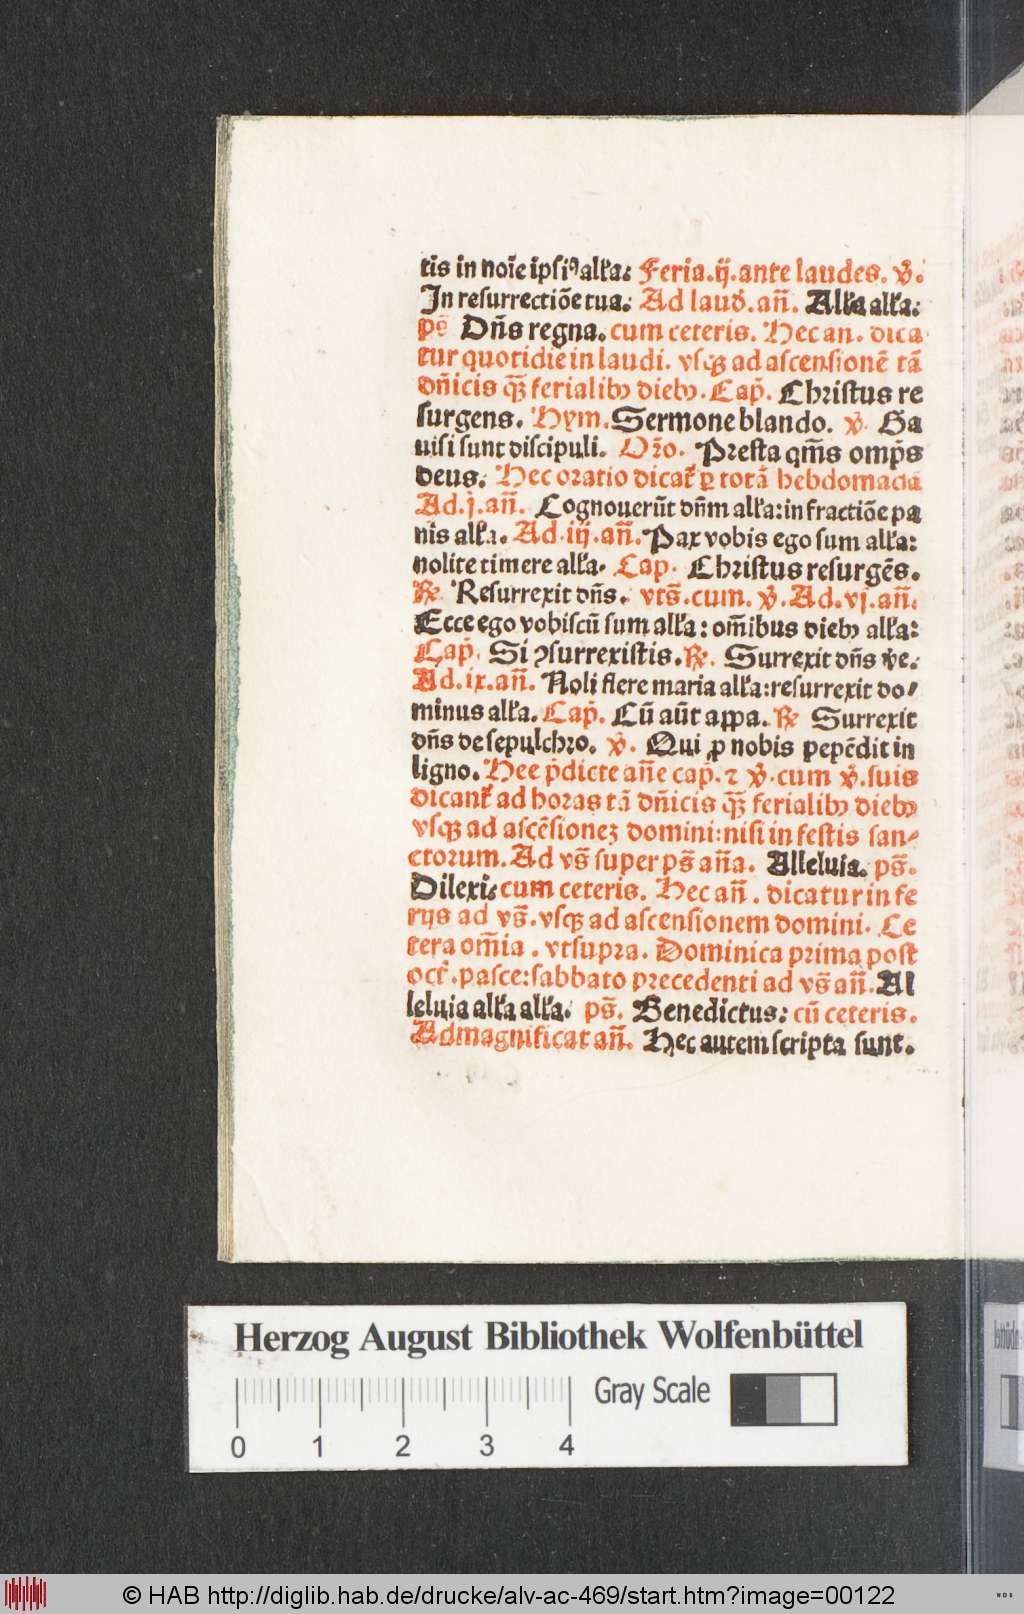 tis in noīe ipsiꝰ alła: Feria.ij.ante laudes. v̾.
In resurrectiōe tua. Ad laud̾.an̄. Alła alła:
ps̄ Dn̄s regna. cum ceteris. Hec an. dica
tur quotidie in laudi. vsqꝫ ad ascensionē tā
dn̄icis q̄ꝫ ferialibꝫ diebꝫ. Cap̄. Christus re
surgens. Hym. Sermone blando. v̾. Ga
uisi sunt discipuli. Or̄o. Presta qm̄s omp̄s
deus. Hec oratio dicat̄ ꝑ totā hebdomadā
Ad.j.an̄. Cognouerūt dn̄m alła: in fractiōe pa
nis alła. Ad.iij.an̄. Pax vobis ego sum alła:
nolite timere alła. Cap. Christus resurgēs.
℞ Resurrexit dn̄s. vts̄.cum. v̾. Ad.vj.an̄.
Ecce ego vobiscū sum alła: om̄ibus diebꝫ alła:
Cap̄. Si ꝯsurrexistis. ℞. Surrexit dn̄s v̾e.
Ad.ix.an̄. Noli flere maria alła: resurrexit do⸗
minus alła. Cap̄. Cū aūt appa. ℞ Surrexit
dn̄s de sepulchro. v̾. Qui ꝓ nobis pepēdit in
ligno. Hee p̄dicte an̄e cap̄. ⁊ v̾. cum v̾. suis
dicant̄ ad horas tā dn̄icis q̄ꝫ ferialibꝫ diebꝫ
vsqꝫ ad ascēsioneꝫ domini: nisi in festis san⸗
ctorum. Ad vs̄ super ps̄ an̄a. Alleluia. ps̄.
Dilexi: cum ceteris. Hec an̄. dicatur in fe
rijs ad vs̄. vsqꝫ ad ascensionem domini. Ce
tera om̄ia. vtsupra. Dominica prima post
oct̄. pasce: sabbato precedenti ad vs̄ an̄. Al
leluia alła alła. ps̄. Benedictus: cū ceteris.
Ad magnificat an̄. Hec autem scripta sunt.
Herzog August Bibliothek Wolfenbüttel
Gray Scale
0 1 2 3 4
© HAB http://diglib.hab.de/drucke/alv-ac-469/start.htm?image=00122